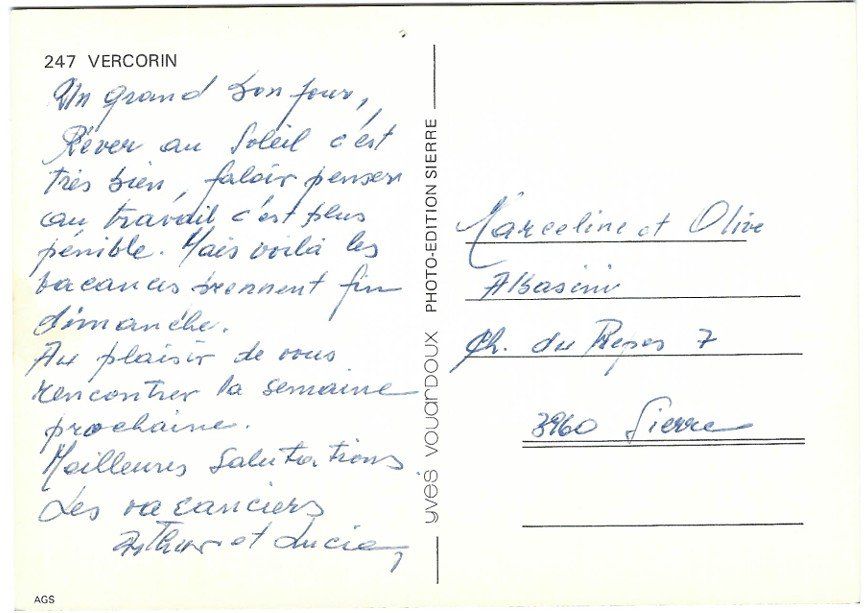 247 VERCORIN
Un grand bon jour,
Rêver au Soleil c'est
très bien, faloir penser
au travail c'est plus
pénible. Mais voilà les
vacances prennent fin
dimanche.
Au plaisir de vous
rencontrer la semaine
prochaine.
Meilleures Salutations.
Les vacanciers
Arthur et Lucie
AGS
yves vouardoux PHOTO-EDITION SIERRE
Marceline et Olive
Albasini
Ch. du Repos 7
3960 Sierre